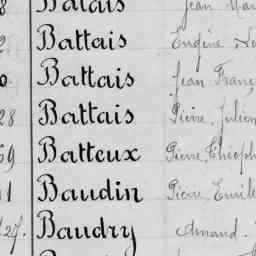 8 Batais Jean Mar
2 Battais Eugène
0 Battais Jean Franç
28 Battais Pierre, Julien
69 Batteux Pierre, Théoph
11 Baudin Pierre, Emile
27. Baudry Amand.